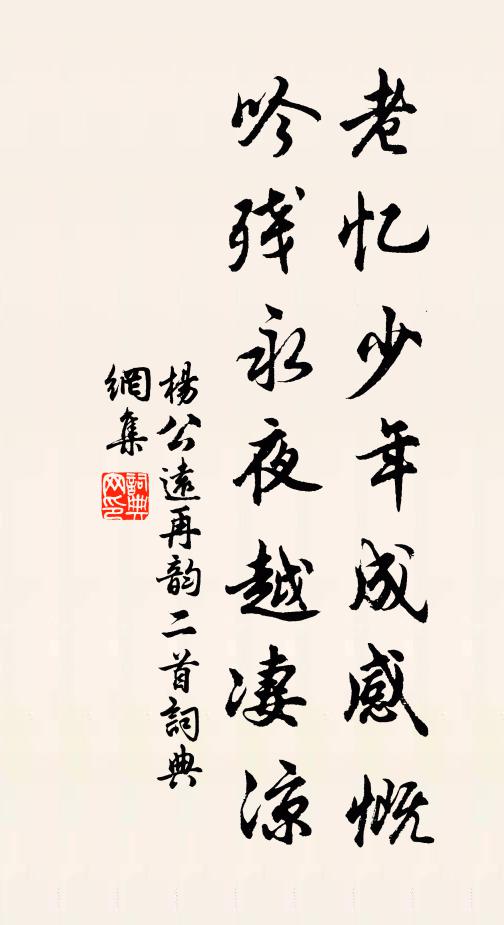 老忆少年成感慨
吟残永夜越凄凉
楊公遠再韵二首詞典
網集
詞典
网印